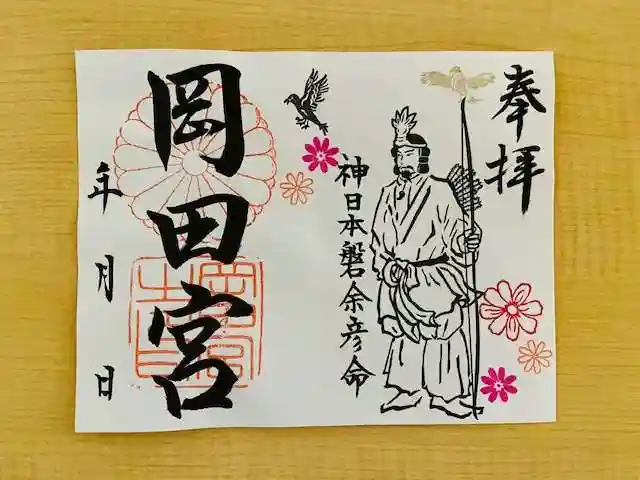 奉拝
神日本磐余彦命
岡田宮
年 月 日